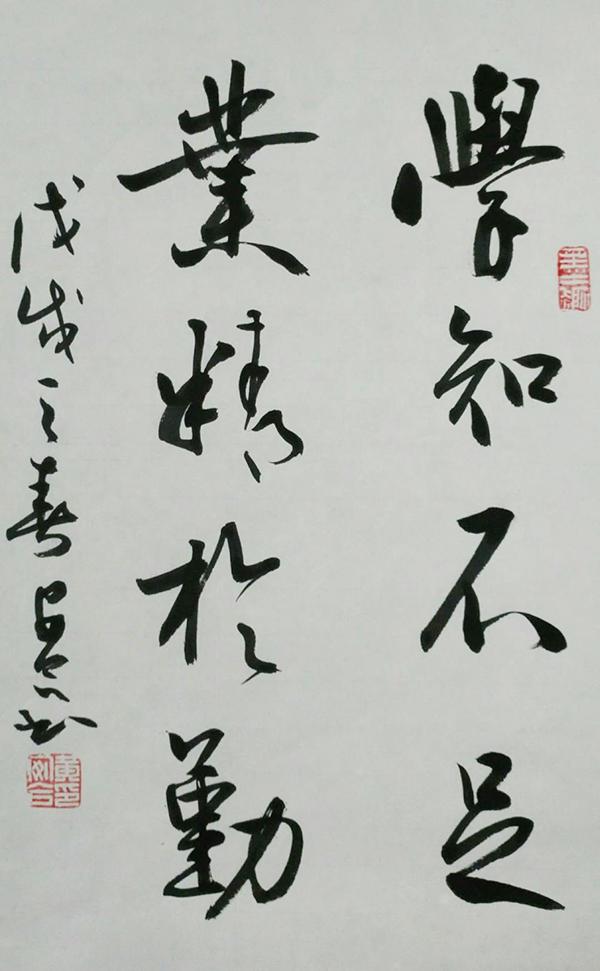 學知不足
業精於勤
戊戌之春